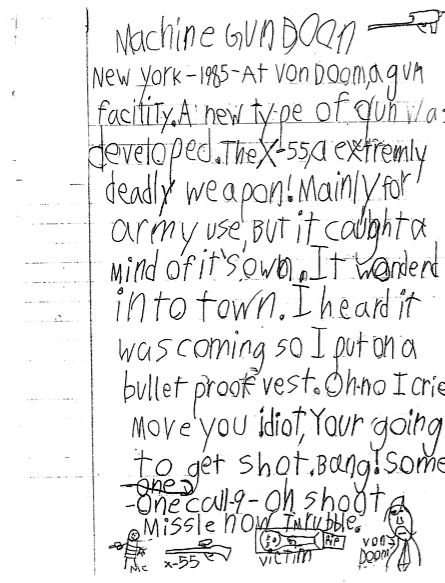 Machine GUN DOOM
New York-1985-At VON DOOM, a gun
facitity. A new type of gun wa
developed. The X-55, a extremly
deadly weapon! Mainly for
army use, BUt it caught a
mind of it's own. It wonderd
into town. I heard it
was coming so I put on a
bullet proof vest. Oh-no I crie
Move you idiot, Your going
to get shot. Bang! Some
one
-one call-9-oh shoot a
Missle now In rubble.
Me
X-55
RIP
VICTIM
VON
DOOM